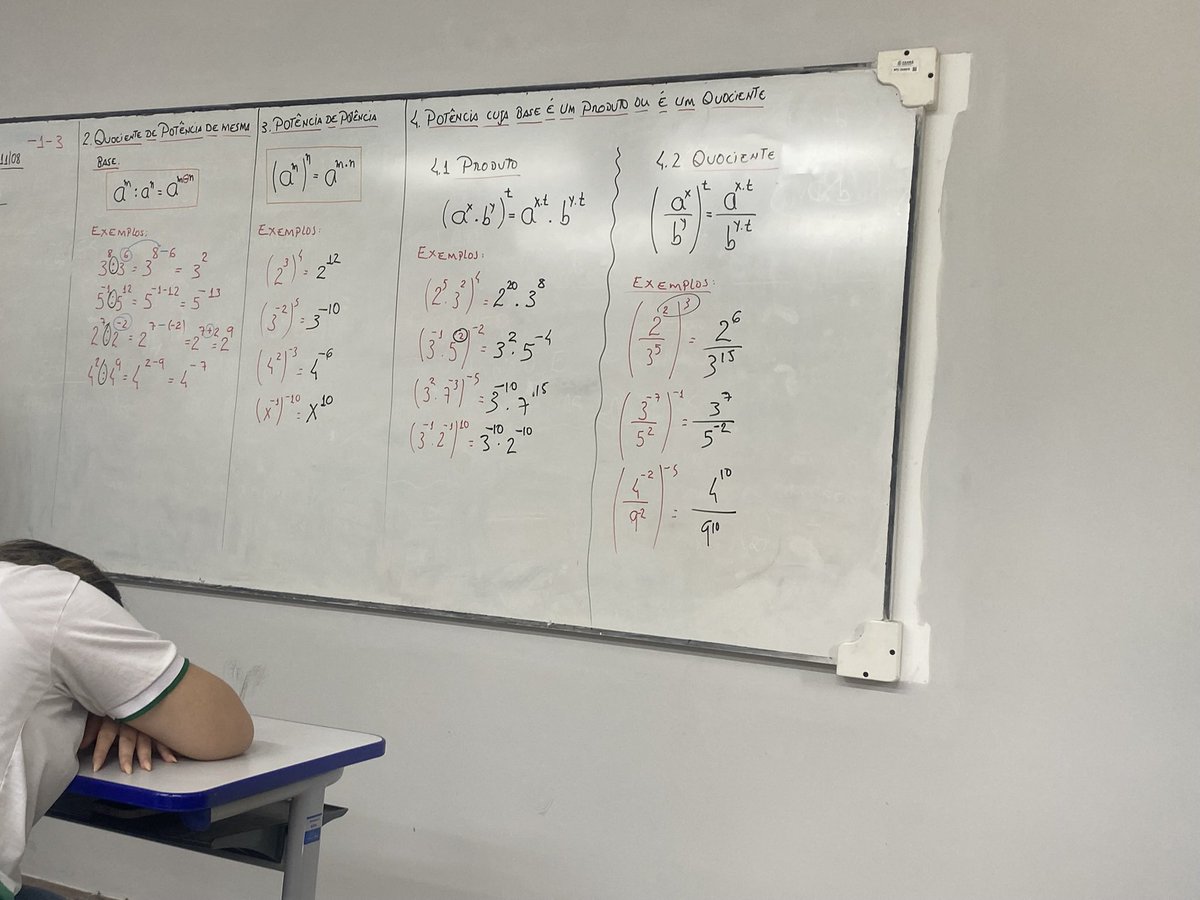 -1-3
11/08
2. QUOCIENTE DE POTÊNCIA DE MESMA
BASE.
aᵐ : aⁿ = aᵐ⊖ⁿ
EXEMPLOS:
3⁸ : 3⁶ = 3⁸⁻⁶ = 3²
5⁻¹ : 5¹² = 5⁻¹⁻¹² = 5⁻¹³
2⁷ : 2⁻² = 2⁷⁻⁽⁻²⁾ = 2⁷⁺² = 2⁹
4² : 4⁹ = 4²⁻⁹ = 4⁻⁷
3. POTÊNCIA DE POTÊNCIA
(aᵐ)ⁿ = aᵐ·ⁿ
EXEMPLOS:
(2³)⁴ = 2¹²
(3⁻²)⁵ = 3⁻¹⁰
(4²)⁻³ = 4⁻⁶
(x⁻¹)⁻¹⁰ = x¹⁰
4. POTÊNCIA CUJA BASE É UM PRODUTO OU É UM QUOCIENTE
4.1 PRODUTO
(aˣ · bʸ)ᵗ = aˣ·ᵗ · bʸ·ᵗ
EXEMPLOS:
(2⁵ · 3²)⁴ = 2²⁰ · 3⁸
(3⁻¹ · 5²)⁻² = 3² · 5⁻⁴
(3² · 7⁻³)⁻⁵ = 3⁻¹⁰ · 7¹⁵
(3⁻¹ · 2⁻¹)¹⁰ = 3⁻¹⁰ · 2⁻¹⁰
4.2 QUOCIENTE
(aˣ/bʸ)ᵗ = aˣ·ᵗ/bʸ·ᵗ
EXEMPLOS:
(2²/3⁵)³ = 2⁶/3¹⁵
(3⁻⁷/5²)⁻¹ = 3⁷/5⁻²
(4⁻²/9⁻²)⁻⁵ = 4¹⁰/9¹⁰